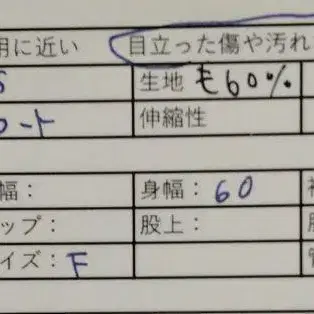 用に近い 目立った傷や汚れ
S 生地 毛60%
コート 伸縮性
幅： 身幅：60
ップ： 股上：
イズ：F